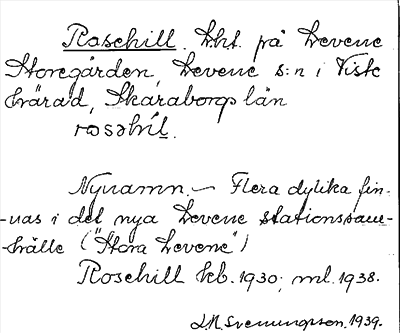 Rosehill. Lht. på Levene
Storegården, Levene s:n i Viste
härad, Skaraborgs län
rosəhíl.
Nynamn. — Flera dylika fin-
-nas i det nya Levene stationssam-
-hälle ("Stora Levene")
Rosehill kb. 1930; ml. 1938.
Svenungson, 1939.